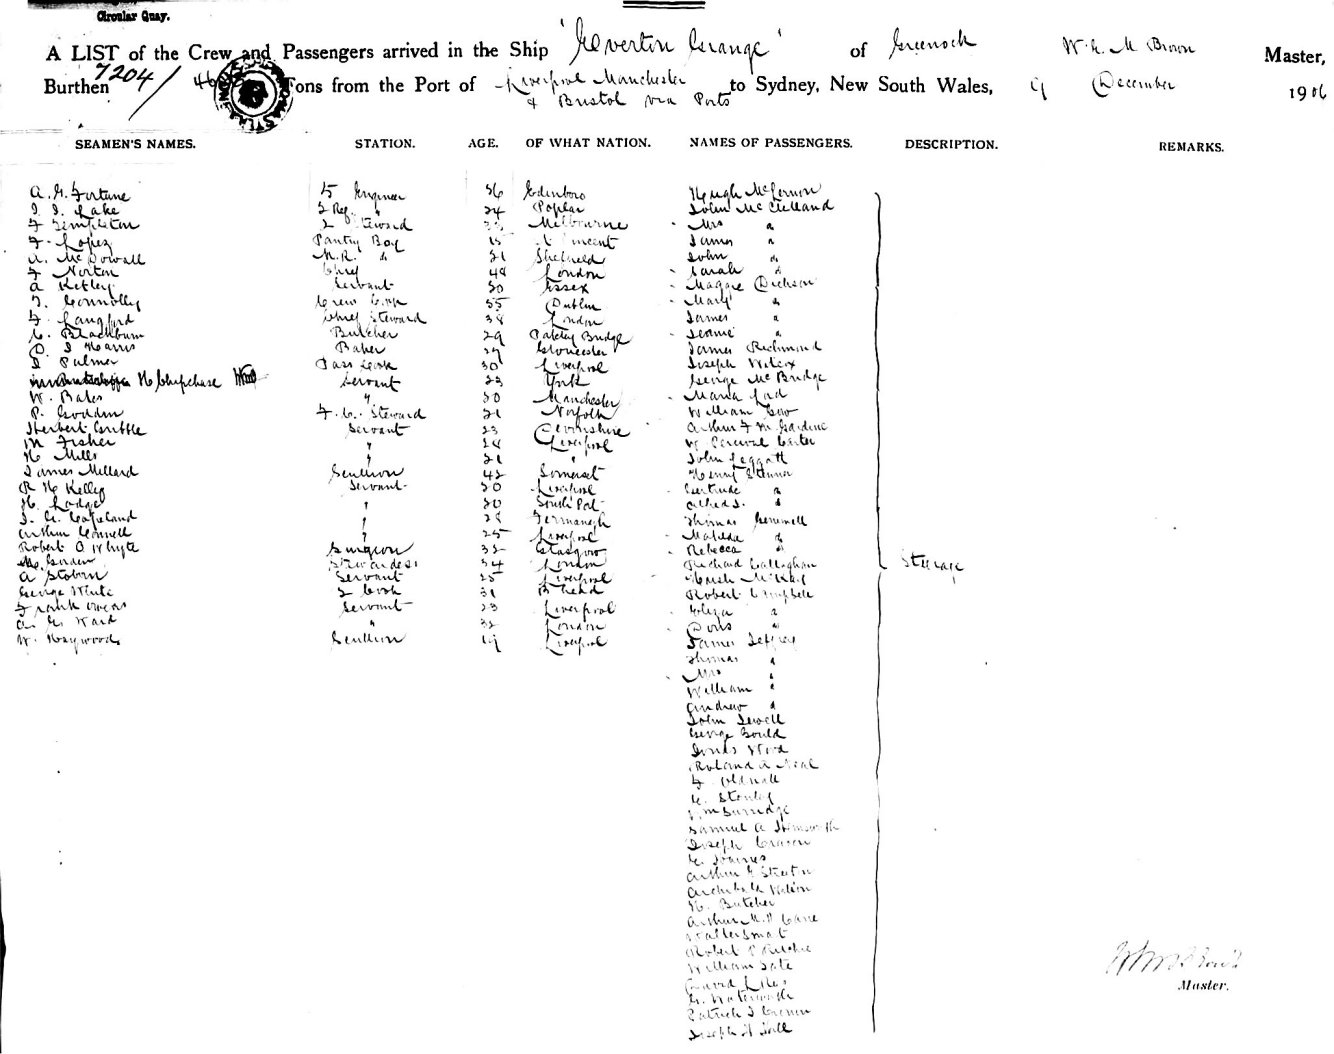 Circular Quay.
A LIST of the Crew and Passengers arrived in the Ship 'Everton Grange' of Greenock W. E. M Brown Master,
Burthen 7204/ Tons from the Port of Liverpool Manchester & Bristol via Ports to Sydney, New South Wales, 9 December 1906
SEAMEN'S NAMES. STATION. AGE. OF WHAT NATION. NAMES OF PASSENGERS. DESCRIPTION. REMARKS.
A. G. Fortune 5 Engineer 26 Edinboro Hugh McLernon
J. J. Lake 2 Ref. " 24 Poplar John McClelland
F Templeton 2 Steward Melbourne Mrs "
F. Lopez Pantry Boy 15 Vincent James "
McDowall M.R. " 21 Sheffield John "
F Norton Chief 48 London Sarah "
A Ketley Servant 30 Essex Maggie Dickson
T. Connolly Crew Cook 55 Dublin Mary "
F. Langford Chief Steward 38 London James "
C. Blackburn Butcher 29 Pateley Bridge Jeanie "
D. J Harris Baker 27 Gloucester James Richmond
J Palmer Pass Cook 30 Liverpool Joseph Wilcox
H Chipchase Servant 23 York George McBridge
W. Bates " 20 Manchester Maria Lad
P. Goddin F. C. Steward 21 Norfolk William Gow
Herbert Gribble Servant 23 Devonshire Arthur F M Gardine
M Fisher " 28 Liverpool W Percival Carter
H Mills " 21 " John Leggatt
James Millard Scullion 42 Somerset Henry Skinner
R H Kelly Servant 20 Liverpool Gertrude "
H. Lodge " 20 South Port Alfred J. "
J. G. Copeland " 28 Fermanagh Thomas Gemmell
Arthur Connell " 25 Liverpool Matilda "
Robert O Whyte Surgeon 32 Glasgow Rebecca "
Mrs Gordon Stewardess 34 London Richard Callaghan
A Stobin Servant 25 Liverpool Hugh
George White 2 Cook 31 B'head Robert Campbell
Frank Owens Servant 23 Liverpool Eliza "
A. G. Ward " 32 London Doris "
W. Haywood Scullion 19 Liverpool James Jeffrey
Steerage
Thomas "
Mrs "
William "
Andrew "
John Sewell
George Gould
Jonas Wood
Roland A Neal
F Oldnall
E. Stanley
Wm Burridge
Samuel A Hemsworth
Joseph Crason
E. Haines
Arthur E Streeton
Archibald Watson
H. Butcher
Arthur M. H Cane
Walter Smart
Robert P Ritchie
William Tate
David Likes
G. Waterworth
Patrick J Cronin
Joseph H Hall
Master.